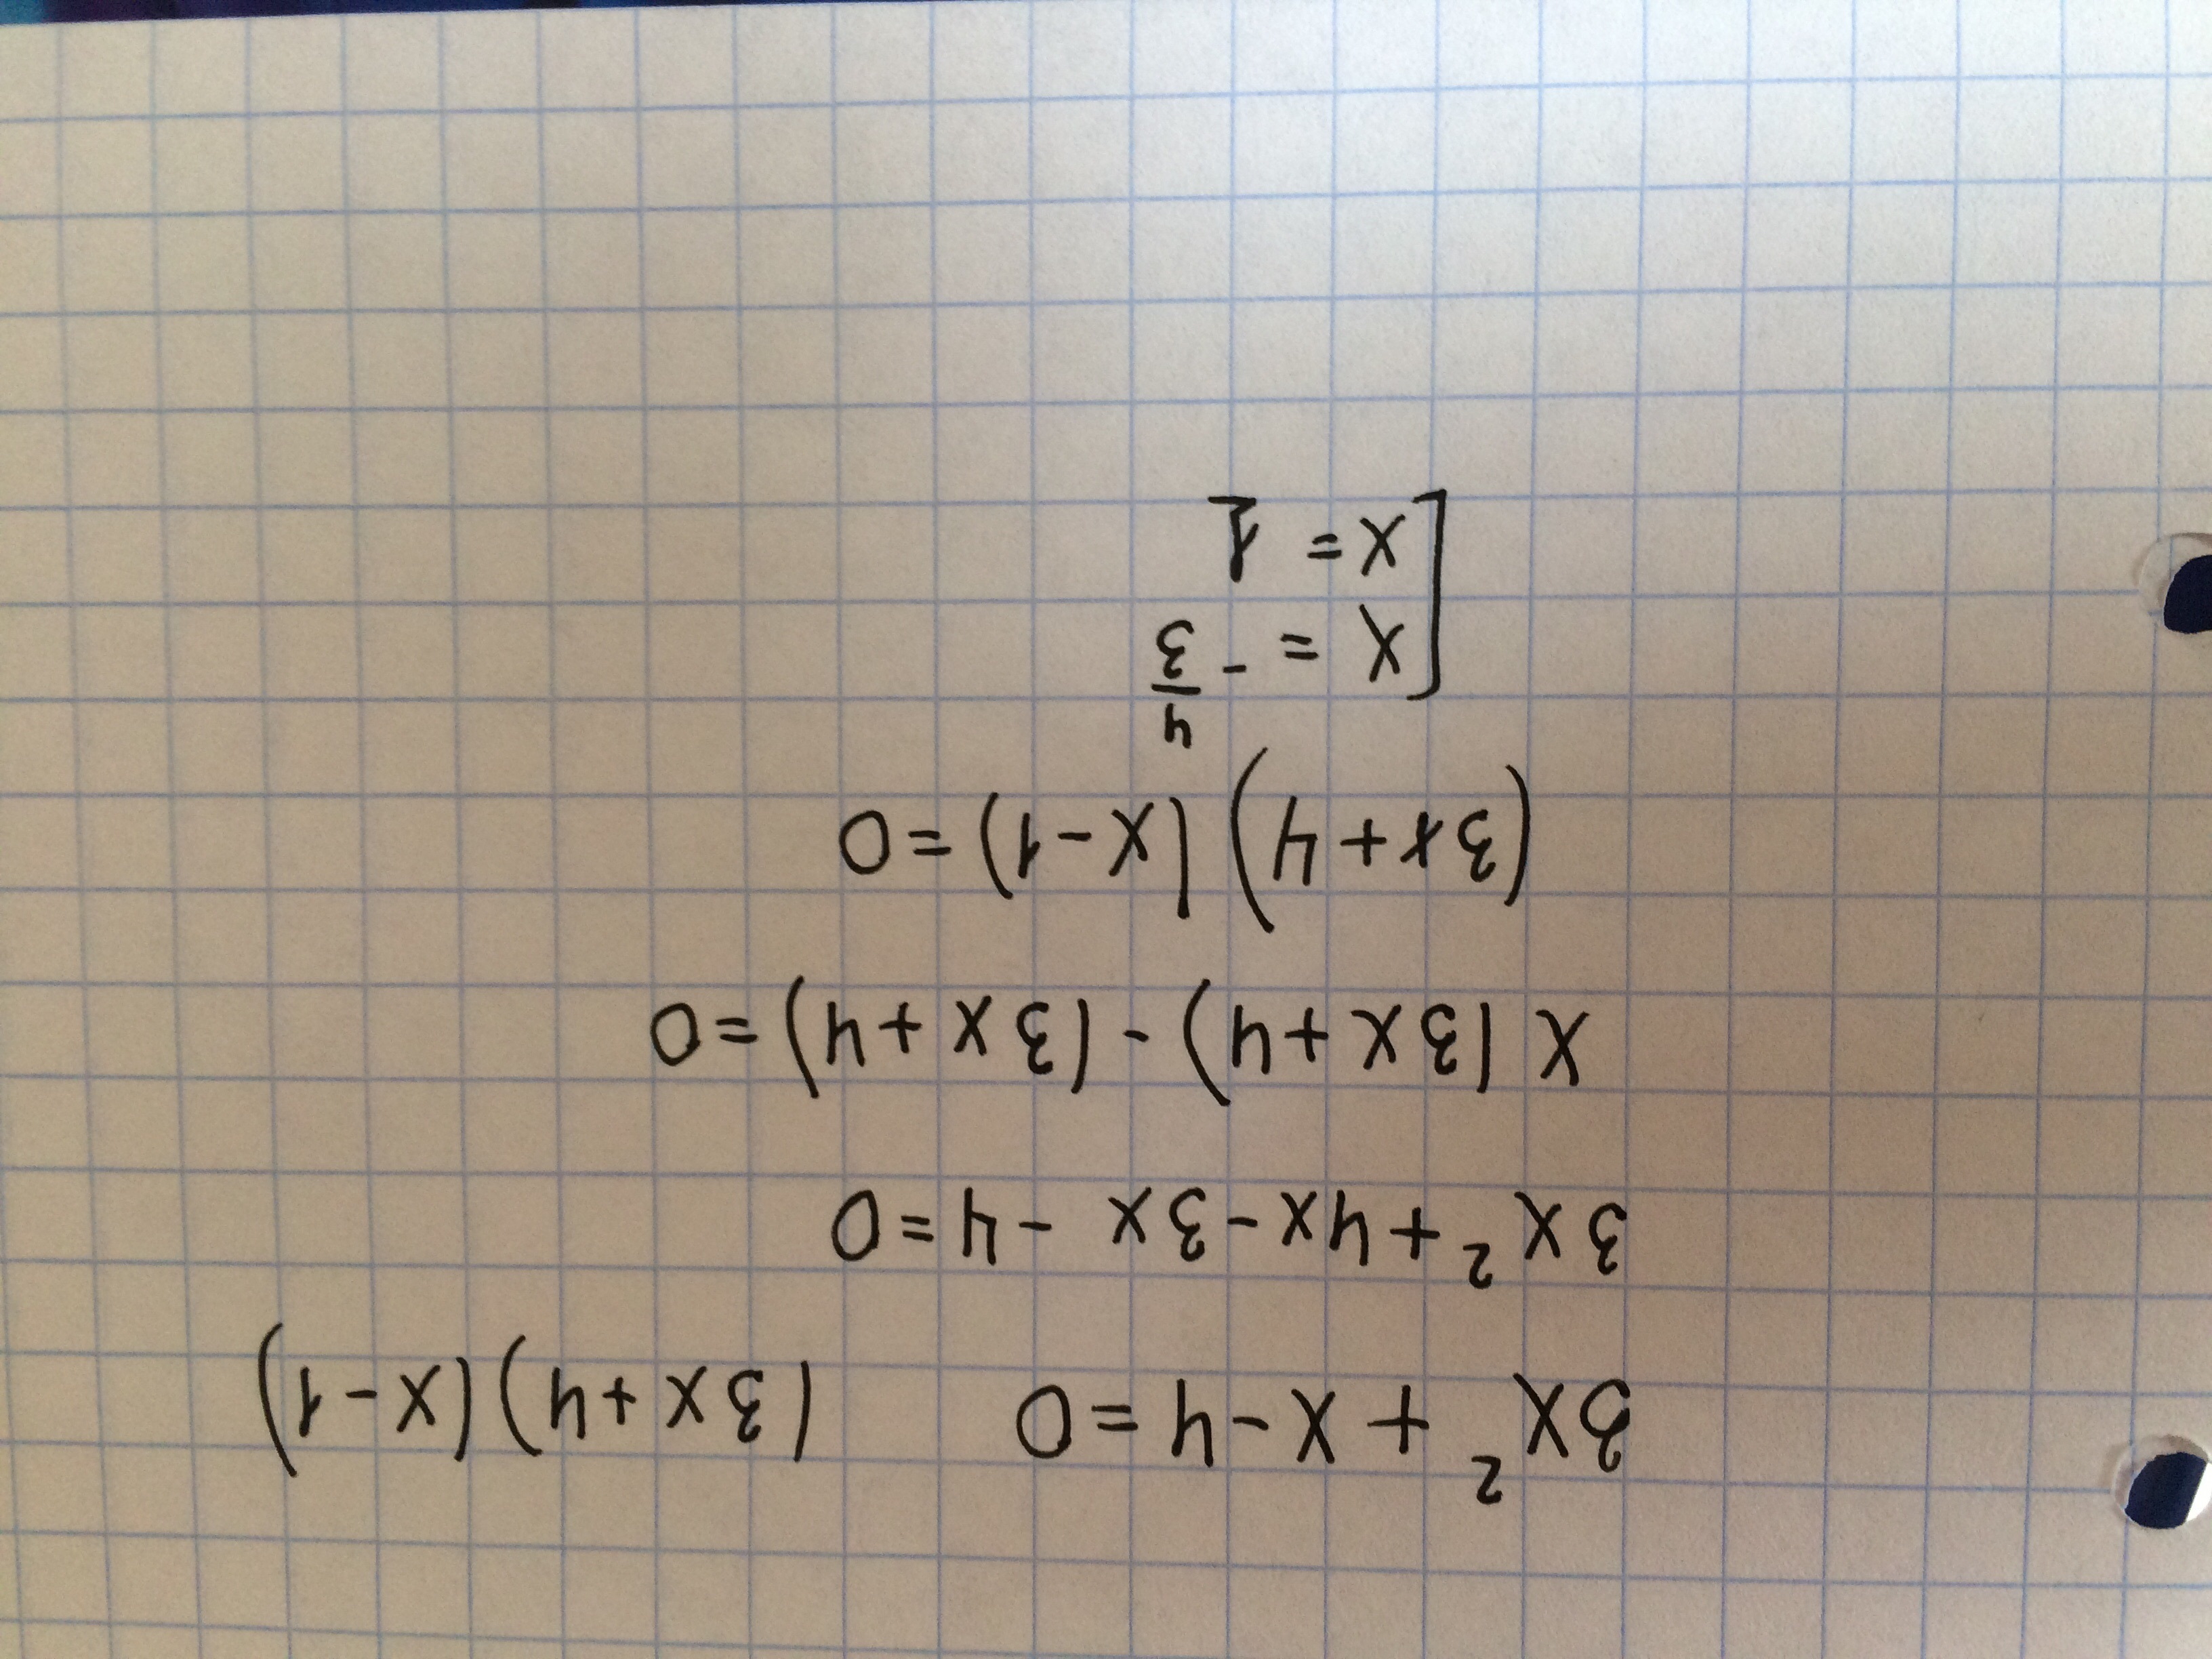 3x² + x - 4 = 0 (3x + 4)(x - 1)
3x² + 4x - 3x - 4 = 0
x(3x + 4) - (3x + 4) = 0
(3x + 4)(x - 1) = 0
[x = -4/3
x = 1